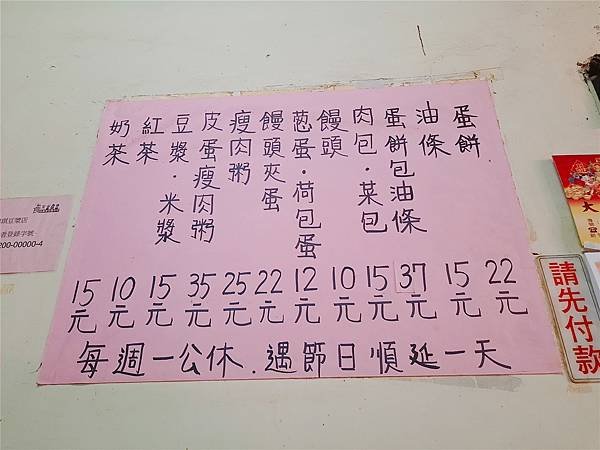 蛋餅 22元
油條 15元
蛋餅包油條 37元
肉包·菜包 15元
饅頭 10元
葱蛋·荷包蛋 12元
饅頭夾蛋 22元
瘦肉粥 25元
皮蛋瘦肉粥 35元
豆漿·米漿 15元
紅茶 10元
奶茶 15元
每週一公休.遇節日順延一天
請先付款
大
豆漿店
者登錄字號
200-00000-4